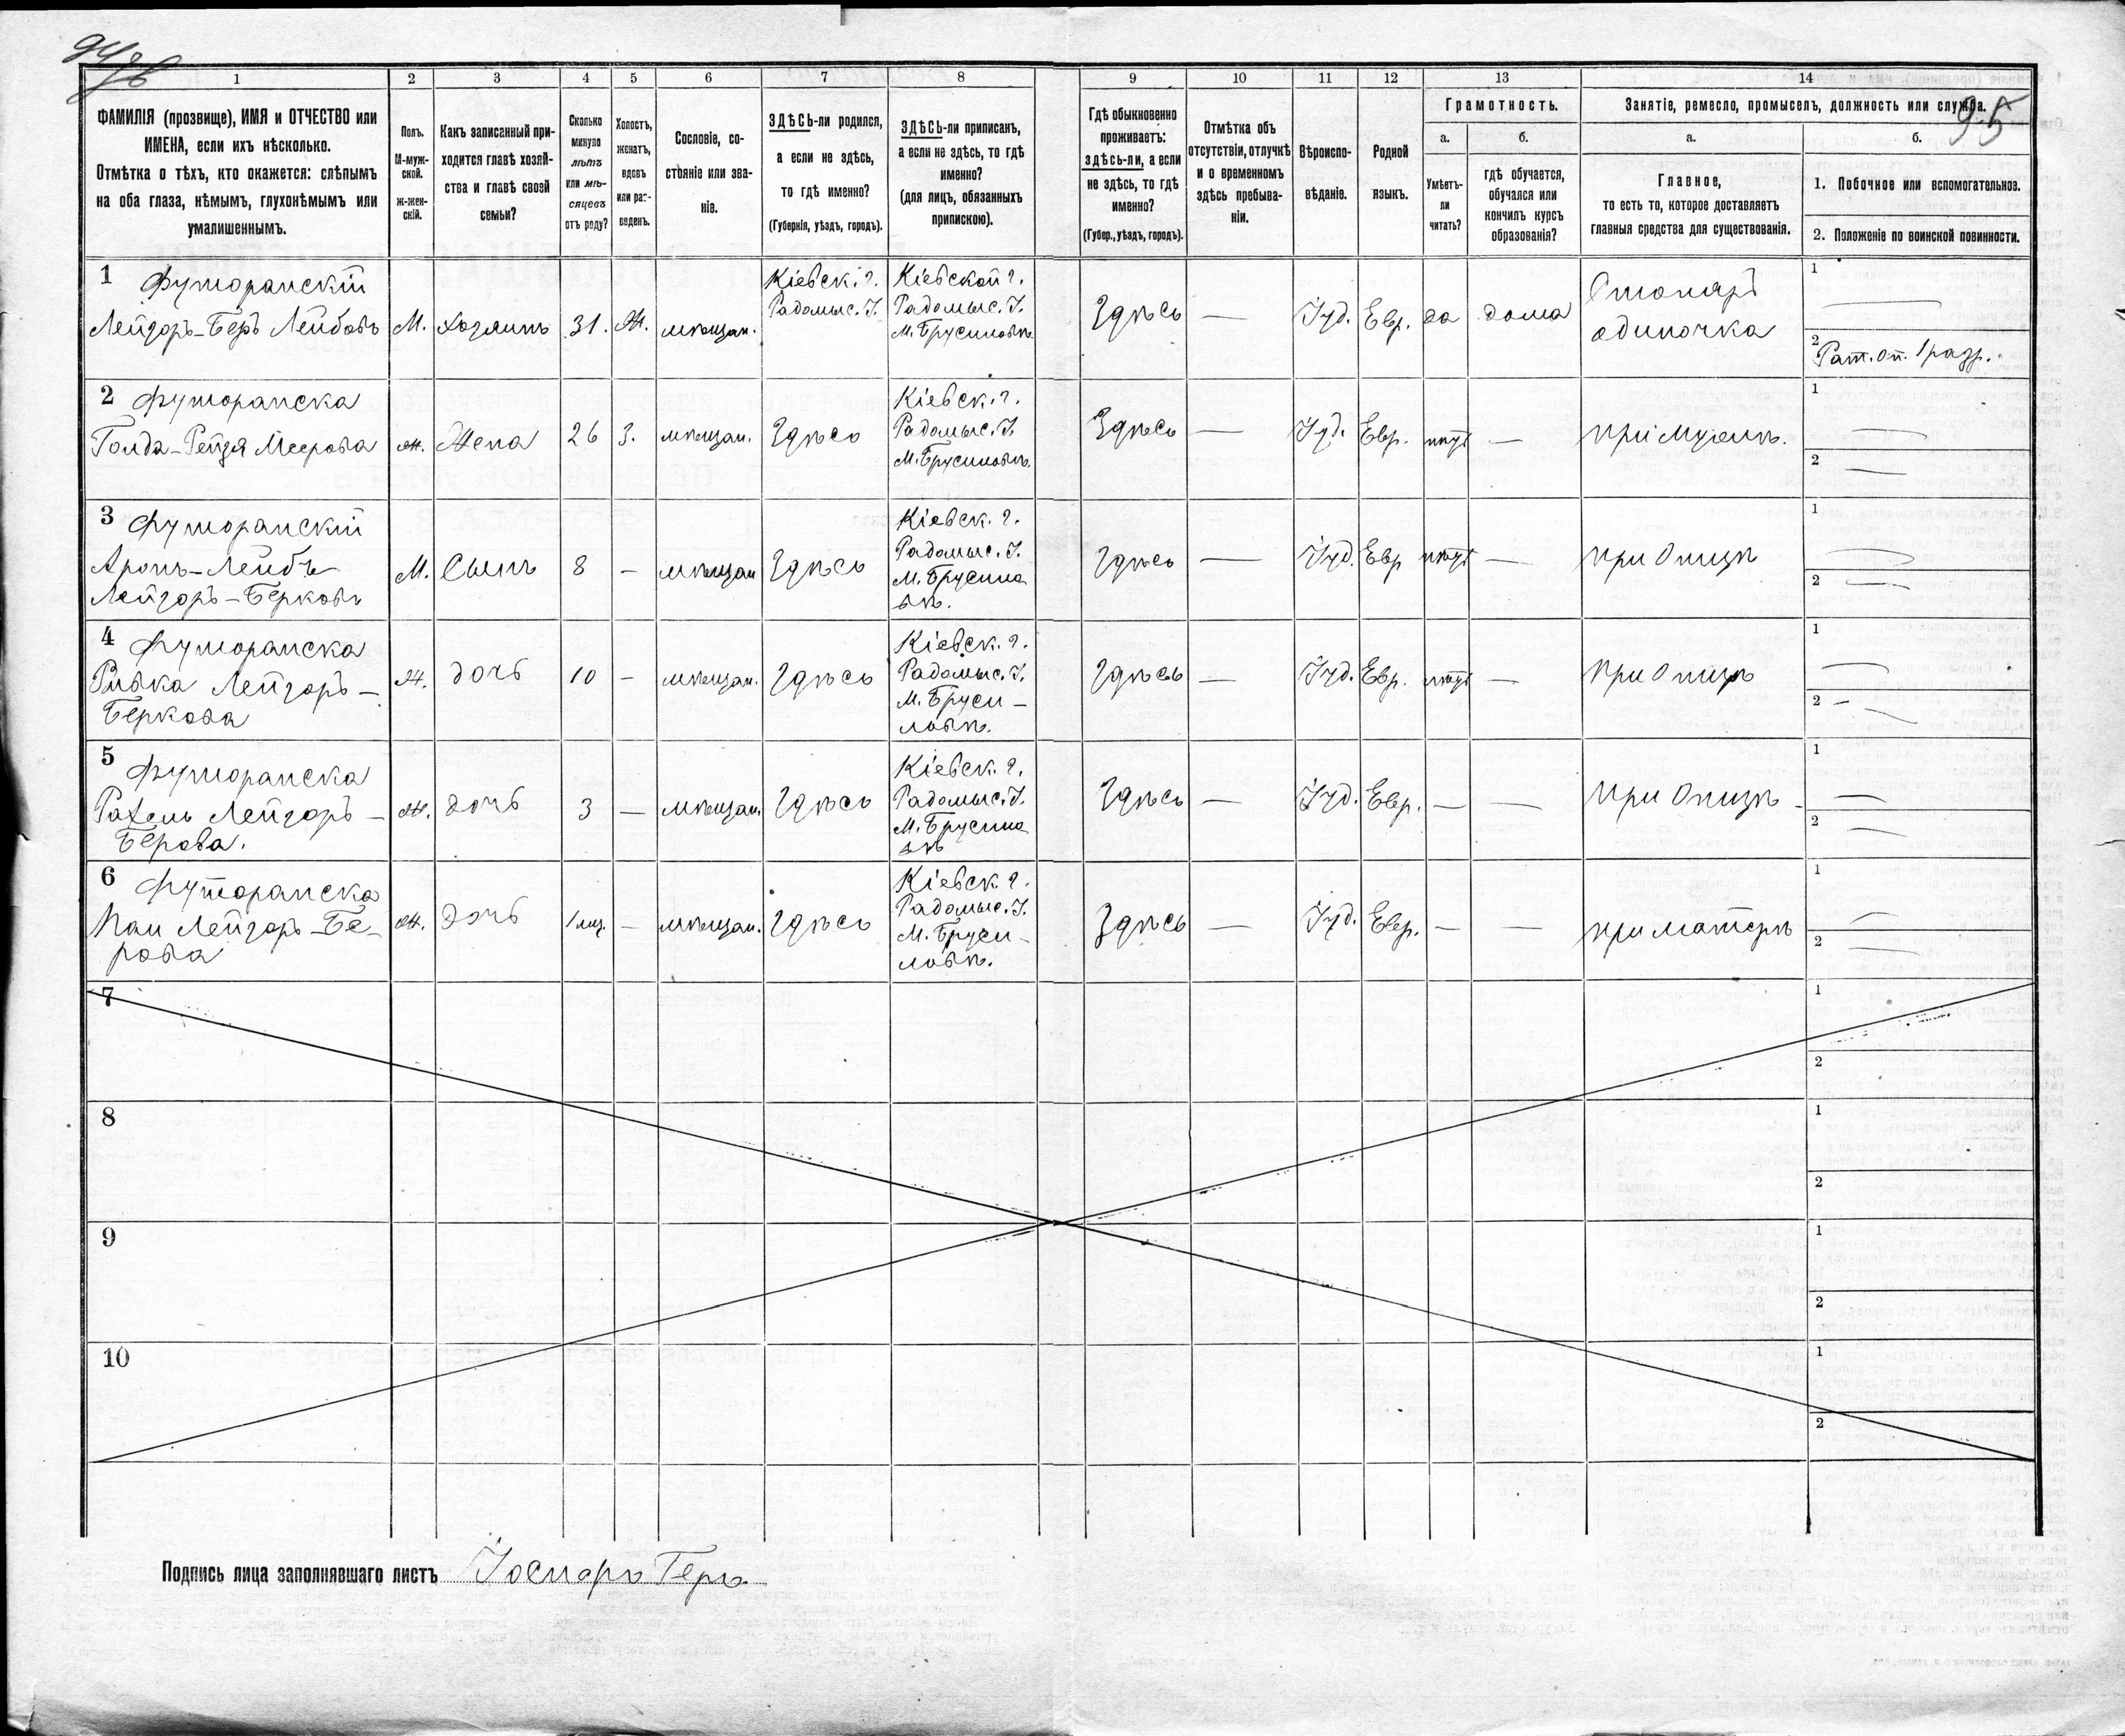 94зв
95
1 2 3 4 5 6 7 8 9 10 11 12 13 14
ФАМИЛІЯ (прозвище), ИМЯ и ОТЧЕСТВО или
ИМЕНА, если ихъ нѣсколько.
Отмѣтка о тѣхъ, кто окажется: слѣпымъ
на оба глаза, нѣмымъ, глухонѣмымъ или
умалишеннымъ.
Полъ.
М-муж-
ской.
ж-жен-
скій.
Какъ записанный при-
ходится главѣ хозяй-
ства и главѣ своей
семьи?
Сколько
минуло
лѣтъ
или мѣ-
сяцевъ
отъ роду?
Холостъ,
женатъ,
вдовъ
или раз-
веденъ.
Сословіе, со-
стояніе или зва-
ніе.
ЗДѢСЬ-ли родился,
а если не здѣсь,
то гдѣ именно?
(Губернія, уѣздъ, городъ).
ЗДѢСЬ-ли приписанъ,
а если не здѣсь, то гдѣ
именно?
(для лицъ, обязанныхъ
припискою).
Гдѣ обыкновенно
проживаетъ:
здѣсь-ли, а если
не здѣсь, то гдѣ
именно?
(Губер., уѣздъ, городъ).
Отмѣтка объ
отсутствіи, отлучкѣ
и о временномъ
здѣсь пребыва-
ніи.
Вѣроиспо-
вѣданіе.
Родной
языкъ.
Грамотность.
а.
Умѣетъ-
ли
читать?
б.
гдѣ обучается,
обучался или
кончилъ курсъ
образованія?
Занятіе, ремесло, промыселъ, должность или служба.
а.
Главное,
то есть то, которое доставляетъ
главныя средства для существованія.
б.
1. Побочное или вспомогательное.
2. Положеніе по воинской повинности.
1 Футоранскій
Лейзоръ-Беръ Лейбовъ
М.
хозяинъ
31.
Ж.
мѣщан.
Кіевск. г.
Радомыс. У.
Кіевской г.
Радомыс. У.
М. Брусиловѣ
Здѣсь
—
Іуд.
Евр.
да
дома
Столяръ
одиночка
1
2
Рат. оп. 1 разр.
2 Футоранска
Голда-Рейзя Меерова
ж.
Жена
26
З.
мѣщан.
Здѣсь
Кіевск. г.
Радомыс. У.
М. Брусиловѣ
Здѣсь
—
Іуд.
Евр.
нѣтъ
—
при Мужѣ.
1
2
3 Футоранскій
Аронъ-Лейбъ
Лейзоръ-Берковъ
М.
Сынъ
8
—
мѣщан
Здѣсь
Кіевск. г.
Радомыс. У.
М. Брусило
вѣ.
Здѣсь
—
Іуд.
Евр
нѣтъ
—
при Отцѣ
1
2
4 Футоранска
Ривка Лейзоръ-
Беркова
Ж.
дочь
10
—
мѣщан.
Здѣсь
Кіевск. г.
Радомыс. У.
М. Бруси-
ловѣ.
Здѣсь
—
Іуд.
Евр.
нѣтъ
—
При Отцѣ
1
2
5 Футоранска
Рахель Лейзоръ-
Берова.
ж.
дочь
3
—
мѣщан.
Здѣсь
Кіевск. г.
Радомыс. У.
М. Брусило
вѣ
Здѣсь
—
Іуд.
Евр.
—
—
при Отцѣ
1
2
6 Футоранска
Лейзоръ-Бе-
рова
ж.
дочь
1 мц.
—
мѣщан.
Здѣсь
Кіевск. г.
Радомыс. У.
М. Бруси-
ловѣ.
Здѣсь
—
Іуд.
Евр.
—
—
при матерѣ
1
2
7
1
2
8
1
2
9
1
2
10
1
2
Подпись лица заполнявшаго листъ